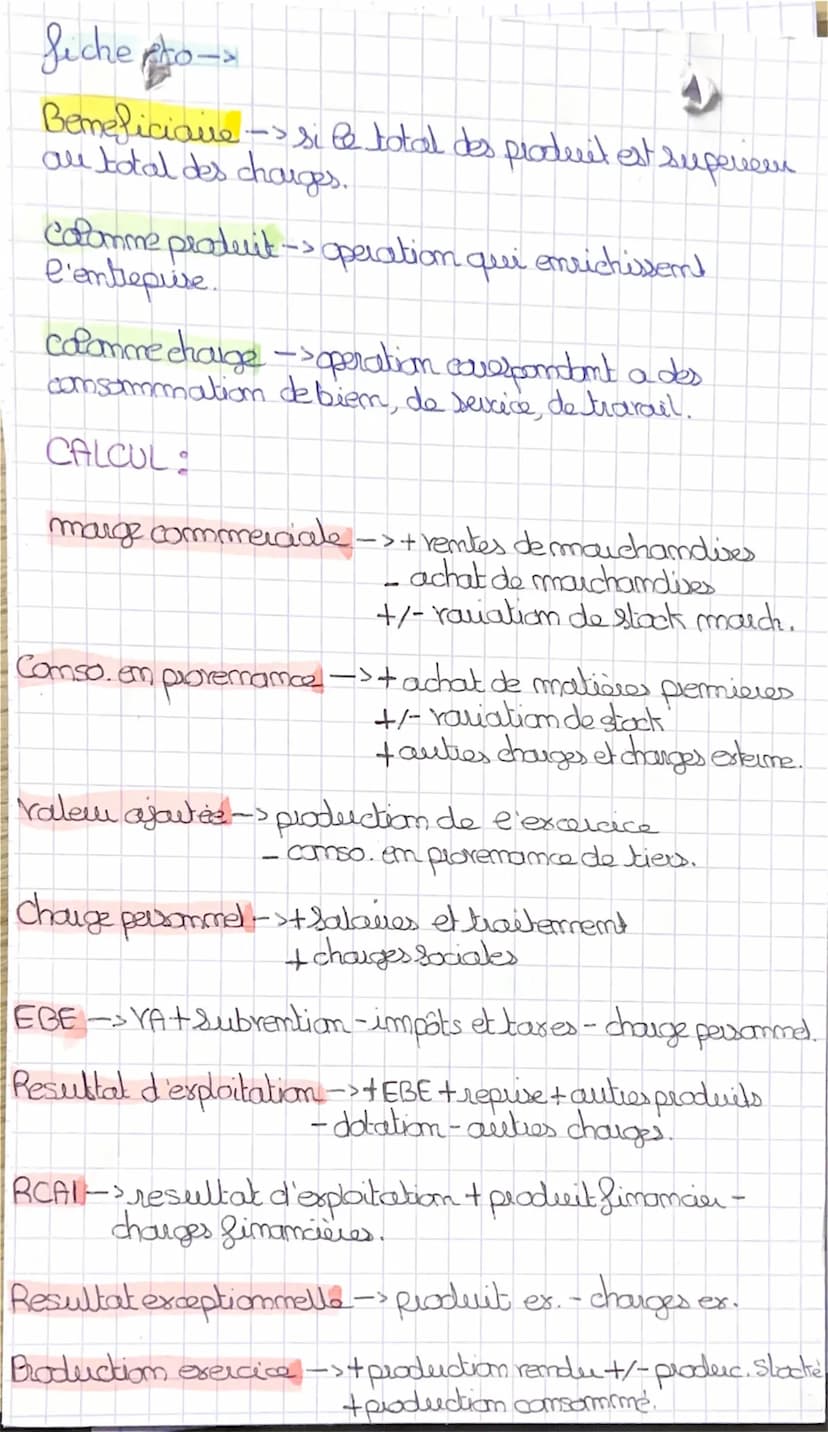 fiche eco ->
1
Beneficiaire -> si le total des produit est superieur
au total des charges.
Colonne produit -> operation qui enrichissent
l'entreprise.
Colonne charge -> operation correspondant a des
consommation de bien, de service, de travail.
CALCUL :
marge commerciale -> + ventes de marchandises
- achat de marchandises
+/- variation de stock march.
Conso. en provenance -> + achat de matières permieres
+/- variation de stock
+ autres charges et charges externe.
Valeur ajoutée -> production de l'excercice
- conso. en provenance de tiers.
Charge personnel -> + Salaires et traitement
+ charges sociales
EBE -> VA + Subvention - impôts et taxes - charge personnel.
Resultat d'exploitation -> + EBE + reprise + autres produits
- dotation - autres charges.
RCAI -> resultat d'exploitation + produit financier -
charges financières.
Resultat exceptionnelle -> produit ex. - charges ex.
Production exercice -> + production vendu +/- produc. Stocké
+ production consommé.